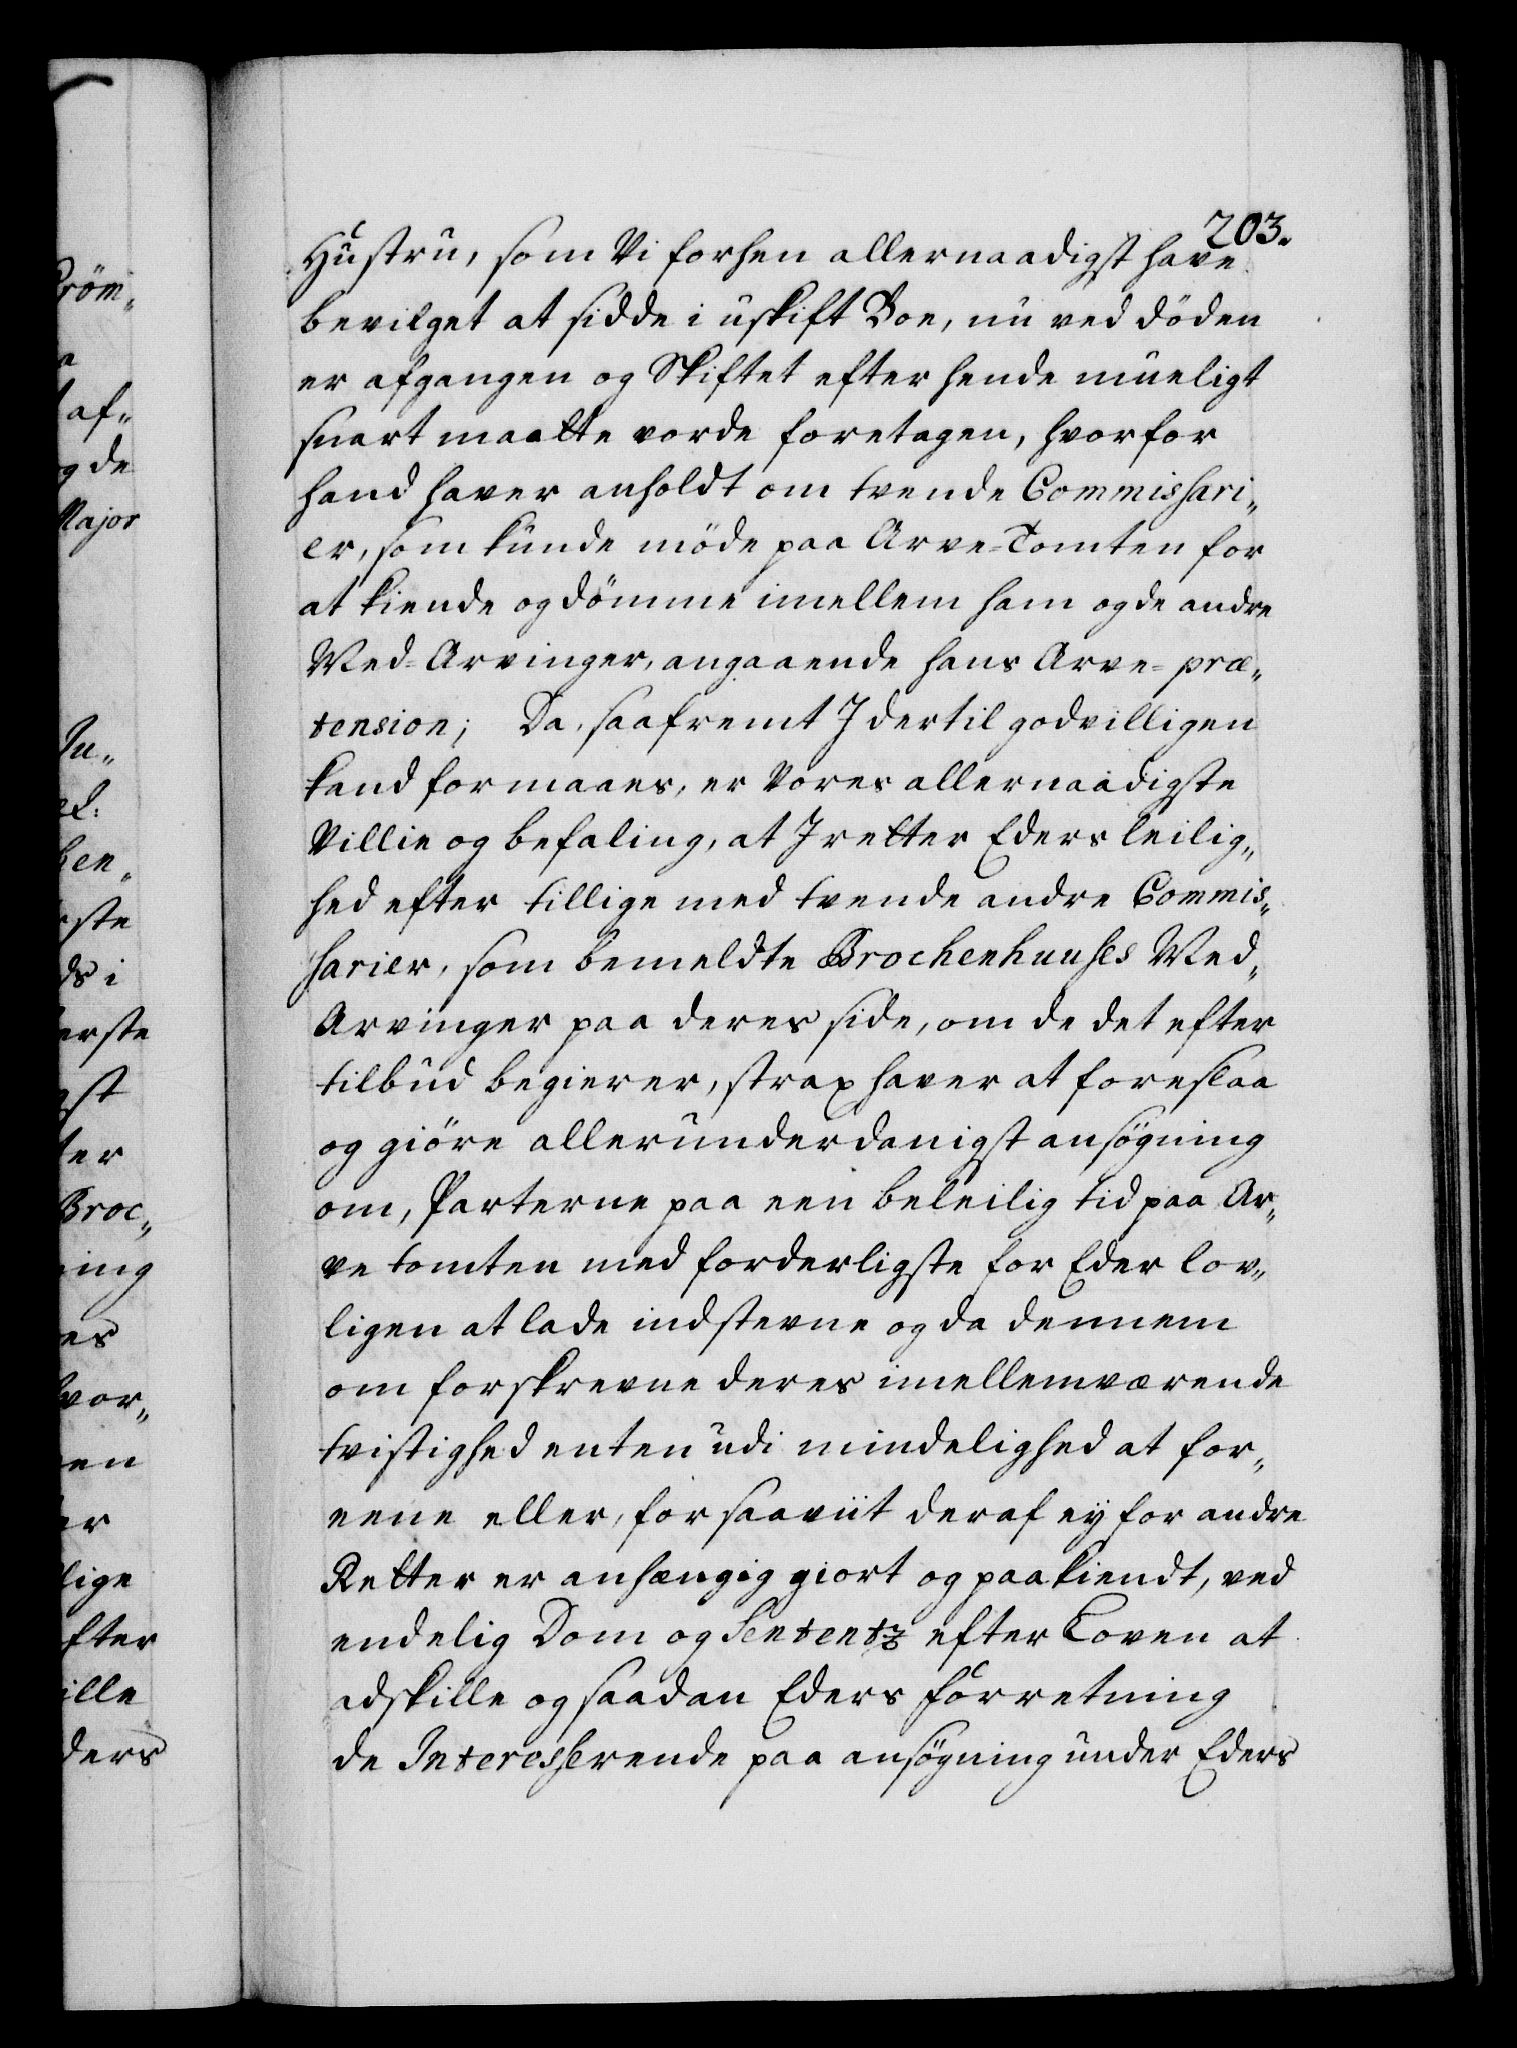 203.
Hustru, som Vi forhen allernaadigst have
bevilget at sidde i uskift Boe, nu ved döden
er afgangen og Skiftet efter hende mueligt
snart maatte vorde foretagen, hvorfor
hand haver anholdt om tvende Commishari„
er, som kunde möde paa Arve=Tomten for
at kiende og dömme imellem ham og de andre
Med=Arvinger, angaaende hans Arve=præ„
tension; Da, saafremt I dertil godvilligen
kand formaaes, er Vores allernaadigste
Villie og befaling, at I retter Eders leilig„
hed efter tillige med tvende andre Commis„
harier, som bemeldte Brochenhuuhes Med„
Arvinger paa deres side, om de det efter
tilbud begierer, strax haver at foreslaa
og giöre allerunderdanigst ansögning
om, Parterne paa een beleilig tid paa Ar„
ve tomten med forderligste for Eder lov„
ligen at lade indstevne og da dennem
om forskrevne deres imellemværende
tvistighed enten udi mindelighed at for„
eene eller, for saaviit deraf ey for andre
Retter er anhængig giort og paakiendt, ved
endelig Dom og Sententz efter Loven at
adskille og saadan Eders forretning
de Interesherende paa ansögning under Eders
röm„
af„
og de
Major
Ju„
hen„
rste
ds i
erste
gst
ter
Broc„
ning
es
hvor„
en
er
lige
fter
ille
ders